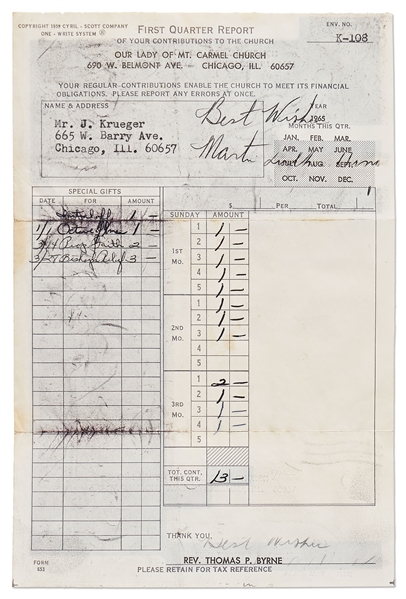 COPYRIGHT 1959 CYRIL - SCOTT COMPANY
ONE - WRITE SYSTEM
FIRST QUARTER REPORT
OF YOUR CONTRIBUTIONS TO THE CHURCH
ENV. NO.
K-108
OUR LADY OF MT. CARMEL CHURCH
690 W. BELMONT AVE. - CHICAGO, ILL. 60657
YOUR REGULAR CONTRIBUTIONS ENABLE THE CHURCH TO MEET ITS FINANCIAL
OBLIGATIONS. PLEASE REPORT ANY ERRORS AT ONCE.
NAME & ADDRESS
Mr. J. Krueger
665 W. Barry Ave.
Chicago, Ill. 60657
Best Wishes
Martin Luther King
YEAR
1965
MONTHS THIS QTR.
JAN. FEB. MAR.
APR. MAY JUNE
AUG. SEPT.
OCT. NOV. DEC.
$ PER TOTAL
SPECIAL GIFTS
DATE FOR AMOUNT
1 -
1/1 1 -
3/14 2 -
3/27 Bishop 3 -
SUNDAY AMOUNT
1ST MO.
1 1 -
2 1 -
3 1 -
4 1 -
5 1 -
2ND MO.
1 1 -
2 1 -
3 1 -
4
5
3RD MO.
1 2 -
2 1 -
3 1 -
4 1 -
5
TOT. CONT. THIS QTR. 13 -
THANK YOU,
Best Wishes
REV. THOMAS P. BYRNE
PLEASE RETAIN FOR TAX REFERENCE
FORM
653